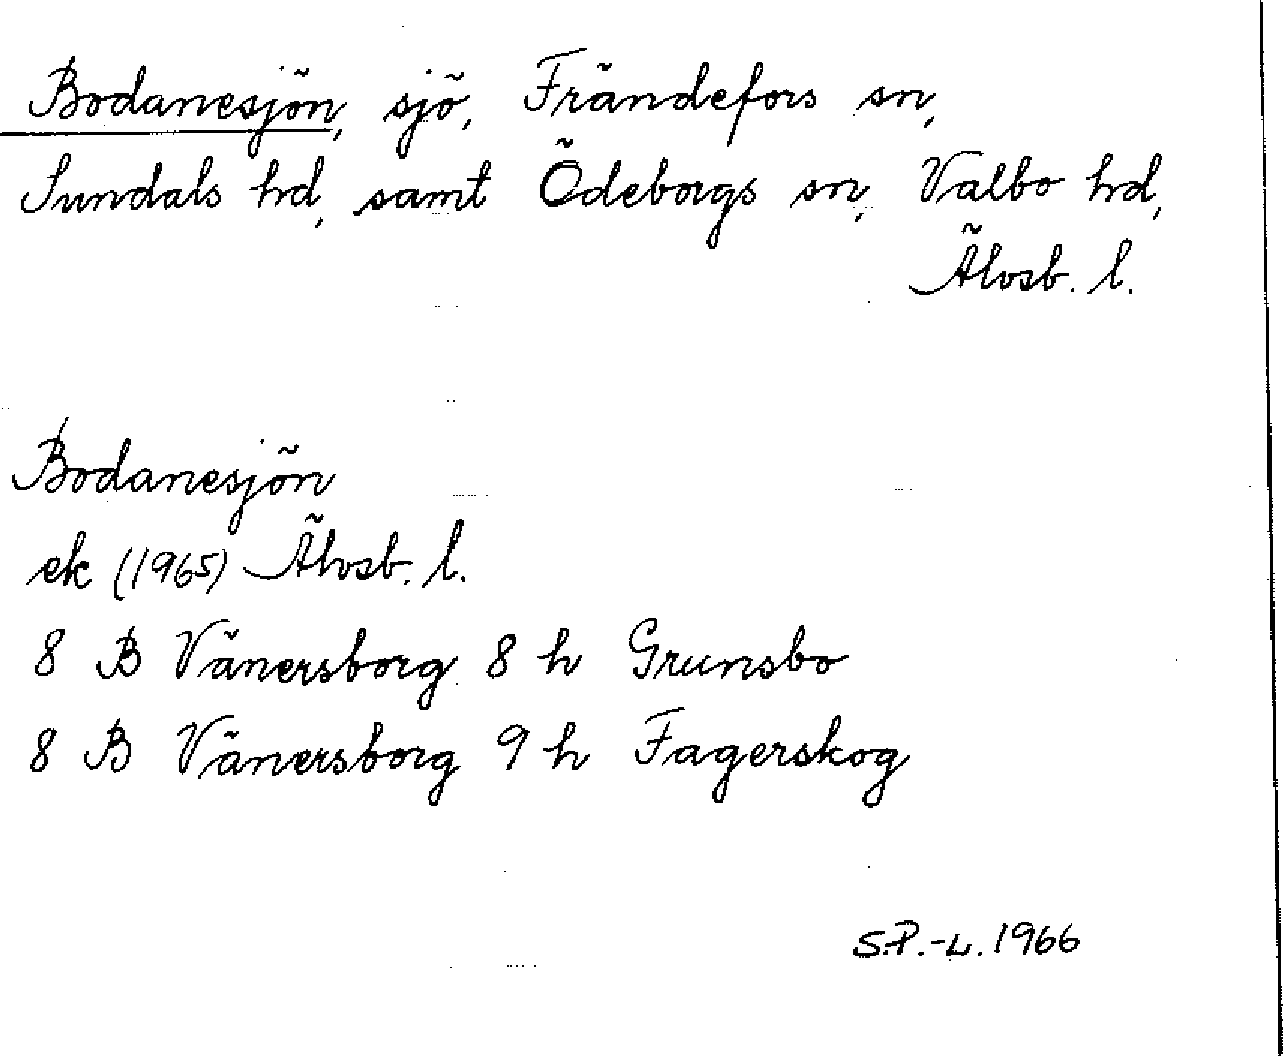 Bodanesjön, sjö, Frändefors sn,
Sundals hd, samt Ödeborgs sn, Valbo hd,
Älvsb. l.
Bodanesjön
ek (1965) Älvsb. l.
8 B Vänersborg 8 h Grunsbo
8 B Vänersborg 9 h Fagerskog
S.P.-L. 1966